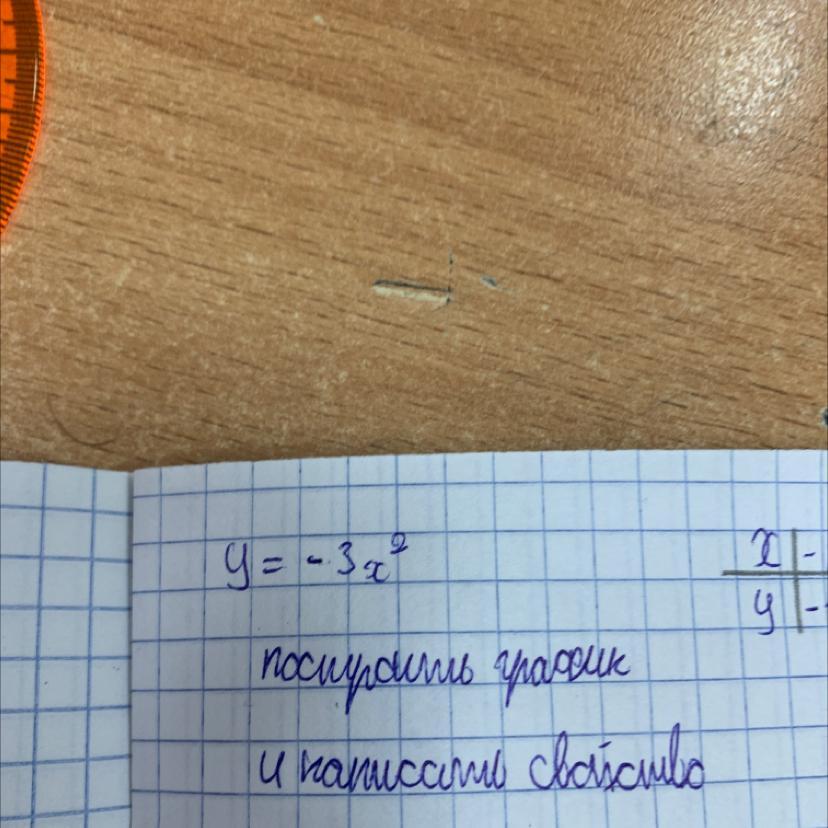 y = -3x²
x | -
y | -
построить график
и написать свойства